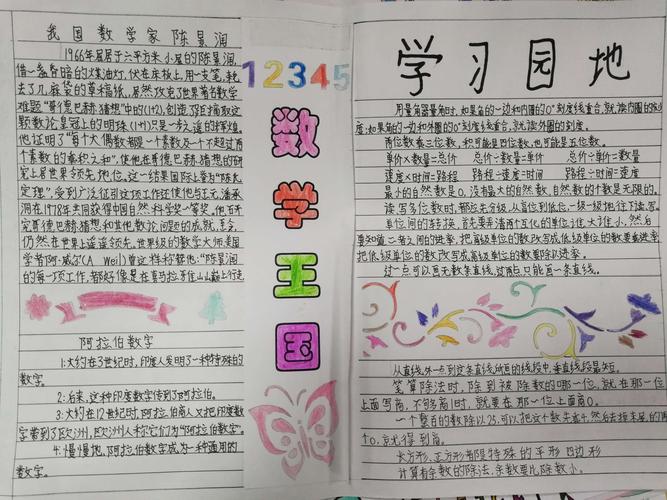 我国数学家陈景润
1966年屈居于六平方米小屋的陈景润,
借一盏昏暗的煤油灯,伏在床板上,用一支笔,耗
去了几麻袋的草稿纸,居然攻克了世界著名数学
难题"哥德巴赫猜想"中的(1+2),创造了距摘取这
颗数论皇冠上的明珠(1+1)只是一步之遥的辉煌。
他证明了"每个大偶数都是一个素数及一个不超过两
个素数的乘积之和",使他在哥德巴赫猜想的研
究上居世界领先地位,这一结果国际上誉为"陈氏
定理",受到广泛征引这项工作还使他与王元、潘承
洞在1978年共同获得中国自然科学奖一等奖,他
究哥德巴赫猜想和其他数论问题的成就,至今,
仍然在世界上遥遥领先,世界级的数学大师美国
学者阿·威尔(A Weil)曾这样称赞他:"陈景润
的每一项工作,都好像是在喜马拉雅山山巅上行走
阿拉伯数字
1:大约在3世纪时,印度人发明了一种特殊的
数字。
2:后来,这种印度数字传到了阿拉伯。
3:大约在12世纪时,阿拉伯商人又把印度数
字带到了欧洲,欧洲人称它们为"阿拉伯数字"。
4:慢慢地,阿拉伯数字成为一种通用的
数字。
12345
数
学
王
国
学习园地
用量角器量角时,如果角的一边和内圈的0°刻度线重合,就读内圈的刻
度;如果角的一边和外圈的0°刻度线重合,就读外圈的刻度。
两位数乘三位数,积可能是四位数,也可能是五位数。
单价×数量=总价 总价÷数量=单价 总价÷单价=数量
速度×时间=路程 路程÷速度=时间 路程÷时间=速度
最小的自然数是0,没有最大的自然数,自然数的个数是无限的。
读、写多位数时,都应先分级,从高位到低位一级一级地往下读、写。
单位间的转换,首先要弄清两个互化的单位谁大谁小,然后
要知道二者之间的进率,把高级单位的数改写成低级单位的数要乘进率
把低级单位的数改写成高级单位的数要除以进率。
过一点可以画无数条直线,过两点只能画一条直线。
从直线外一点到这条直线所画的线段中,垂直线段最短。
笔算除法时,除到被除数的哪一位,就在那一位
上面写商,不够商1时,就要在那一位上面商0。
一个整百的数除以25,可以把这个数先乘4,然后去掉末尾的两
个0,就得到商。
长方形、正方形都是特殊的平行四边形
计算有余数的除法,余数要比除数小。